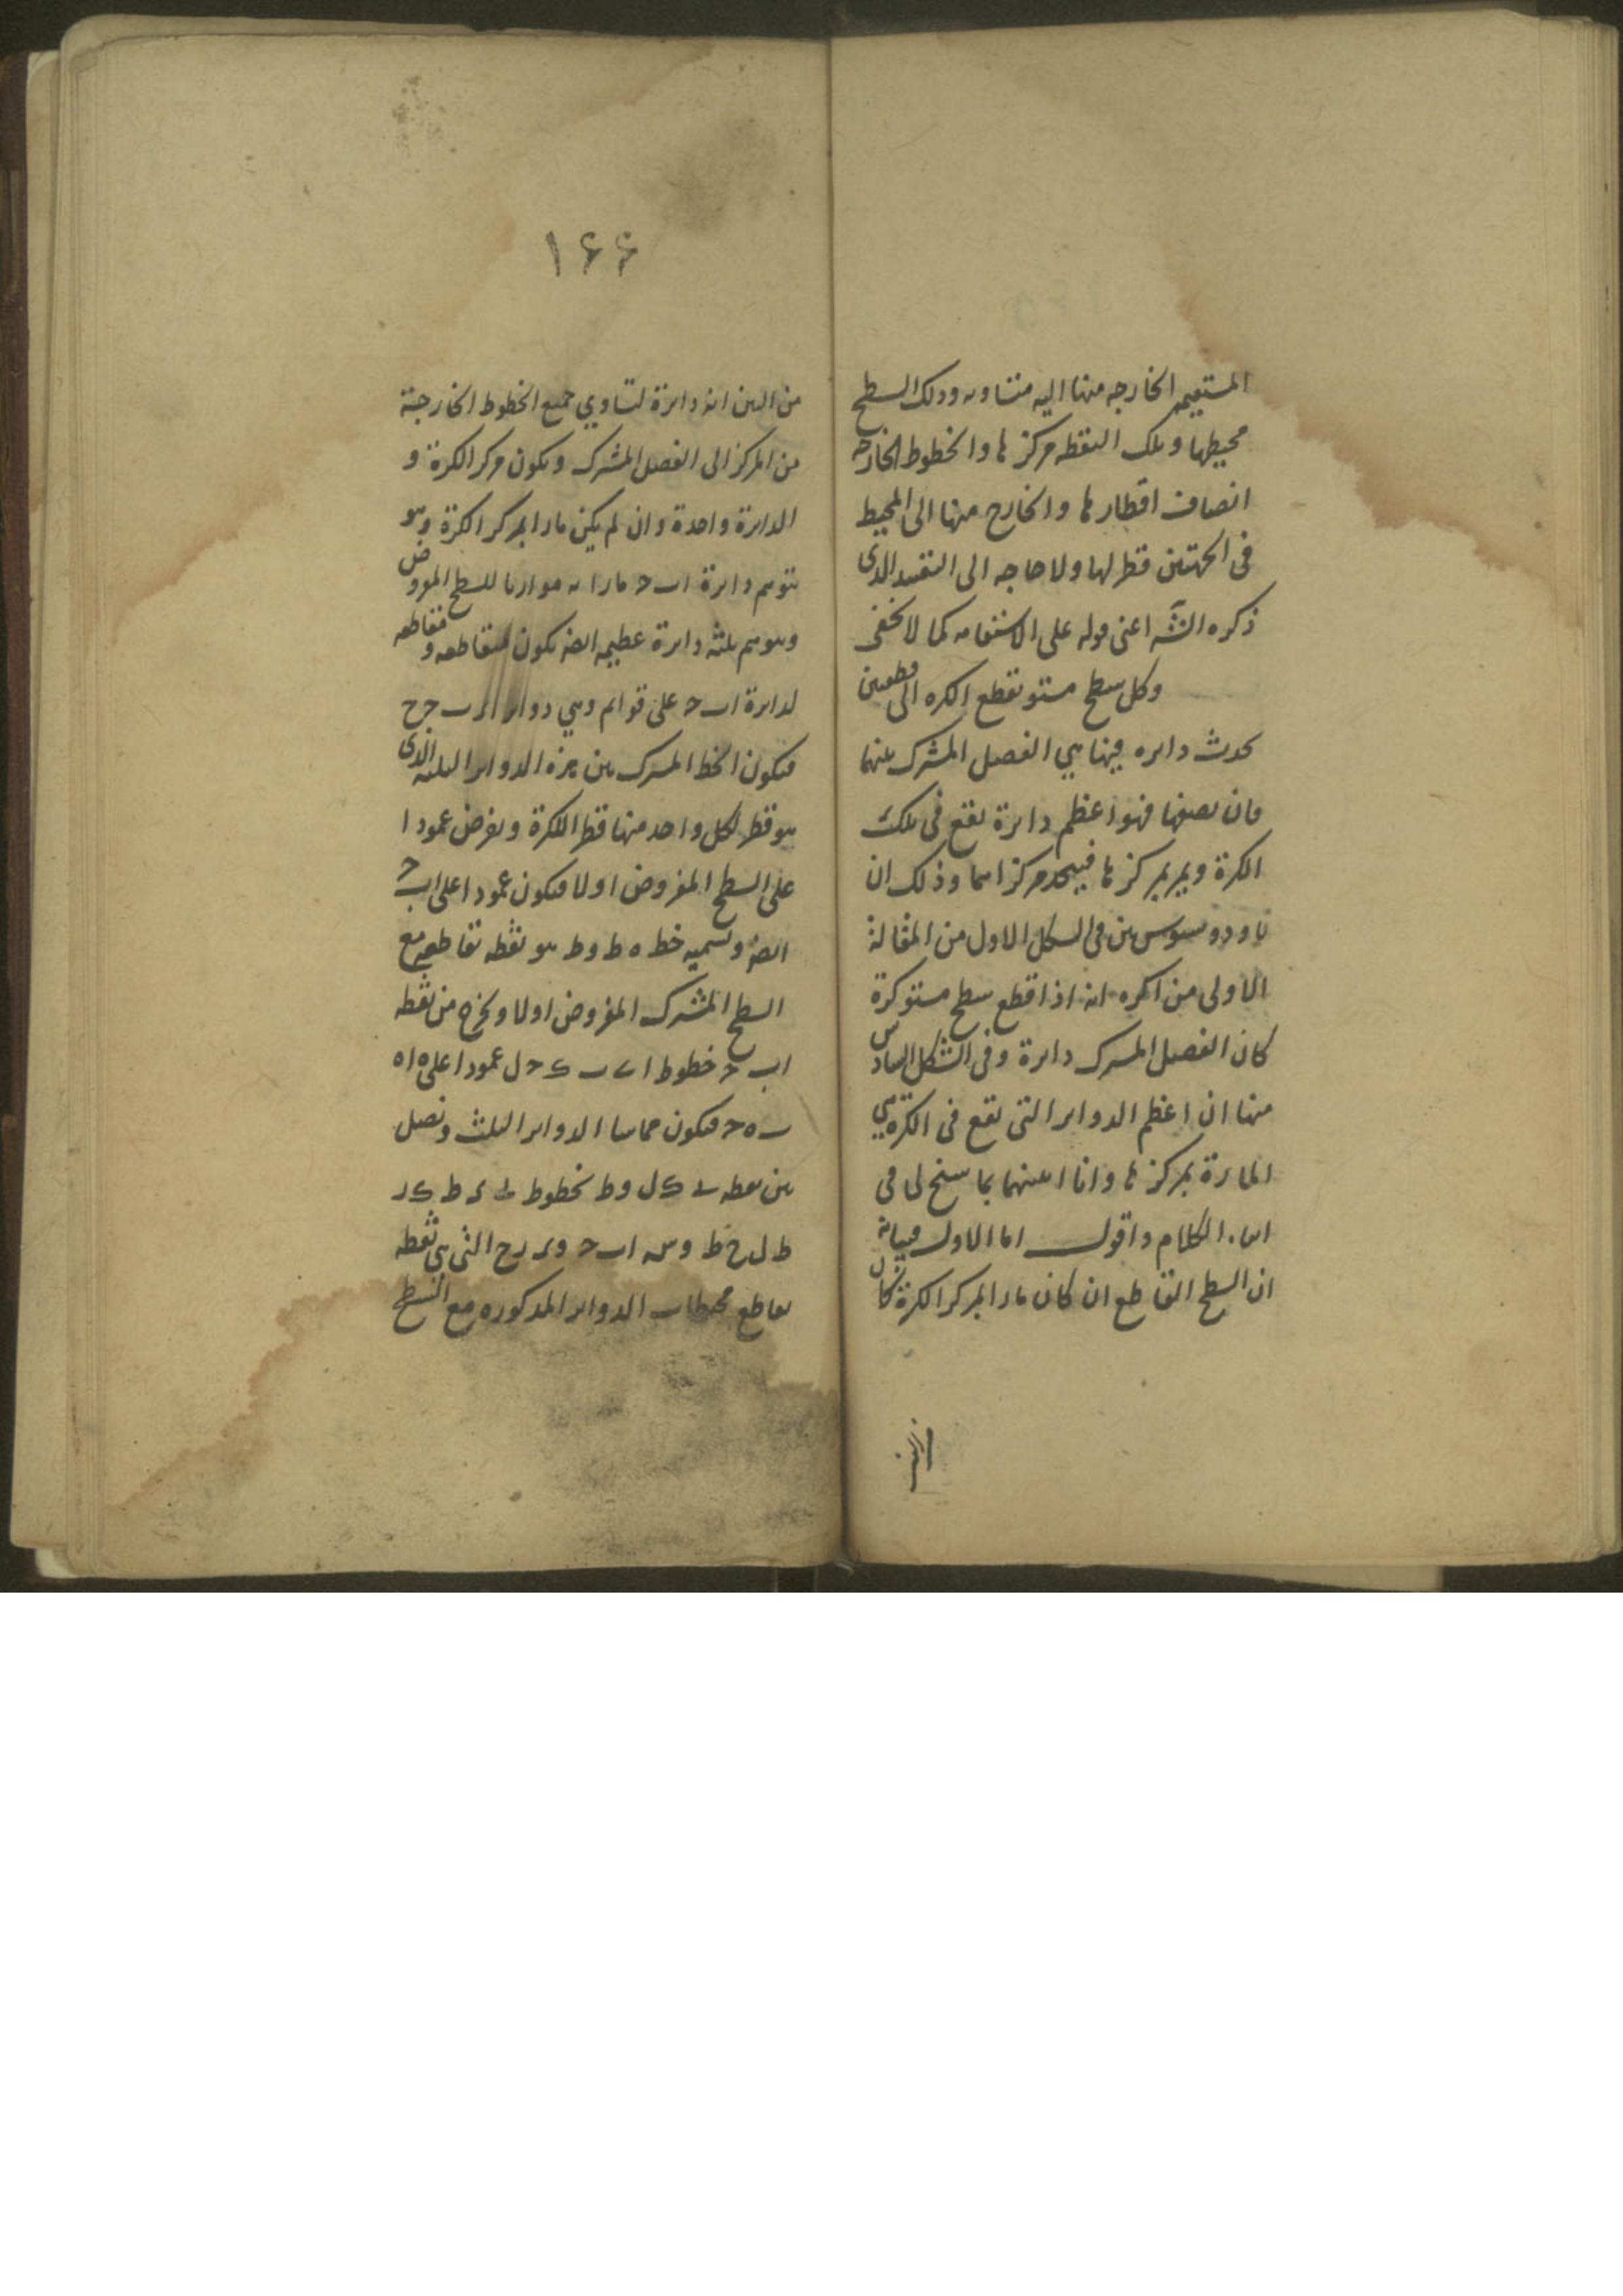 المستقيمه الخارجه منها اليه متساويه وذلك السطح
محيطها وتلك النقطه مركز ها والخطوط الخارجه
انصاف اقطار ها والخارج منها الى المحيط
فى الجهتين قطر لها ولا حاجه الى التقييد الذى
ذكره الشه اعنى قوله على الاستقامه كما لا يخفى
وكل سطح مستو يقطع الكره الى قطعتين
يحدث دايره فيها هي الفصل المشترك بينهما
فان نصفها فهو اعظم دايرة تقع فى تلك
الكرة ويمر بمركز ها فيتحد مركزاهما وذلك ان
ثاودوسيوس بين فى الشكل الاول من المقالة
الاولى من اكره انه اذا قطع سطح مستو كرة
كان الفصل المشترك دايرة وفى الشكل السادس
منها ان اعظم الدواير التى تقع فى الكرة هي
المارة بمركز ها وانا ابينهما بما سنح لى فى
الكلام واقول اما الاول فبيانه
ان السطح القاطع ان كان مارا بمركز الكرة كان
١٦٦
من البين انه دايرة لتساوي جميع الخطوط الخارجة
من المركز الى الفصل المشترك ويكون مركز الكرة و
الدايرة واحدة وان لم يكن مارا بمركز الكرة وهو
نتوهم دايرة اب ح مارا به موازيا للسطح المفروض
ونتوهم ثلثه دايرة عظيمه ايضا يكون متقاطعه و مقاطعه
لدايرة اب ح على قوايم وهي دواير
فيكون الخط المشترك بين هذه الدواير الثلثه الذى
هو قطر لكل واحد منها قطر الكرة ويفرض عمودا
على السطح المفروض اولا فيكون عمودا على اب ح
ايضا ونسميه خط ه ط وط هو نقطه تقاطعه مع
السطح المشترك المفروض اولا ونخرج من نقطه
اب ح خطوط ا ى ب ك ح ل عمودا على ه ا ه
ب ه ح فيكون مماسا الدواير الثلث ونصل
بين نقطه ى ك ل وط بخطوط
ط ل ح ط وبين اب ح و ر ح التى هى نقطه
تقاطع محيطات الدواير المذكوره مع السطح